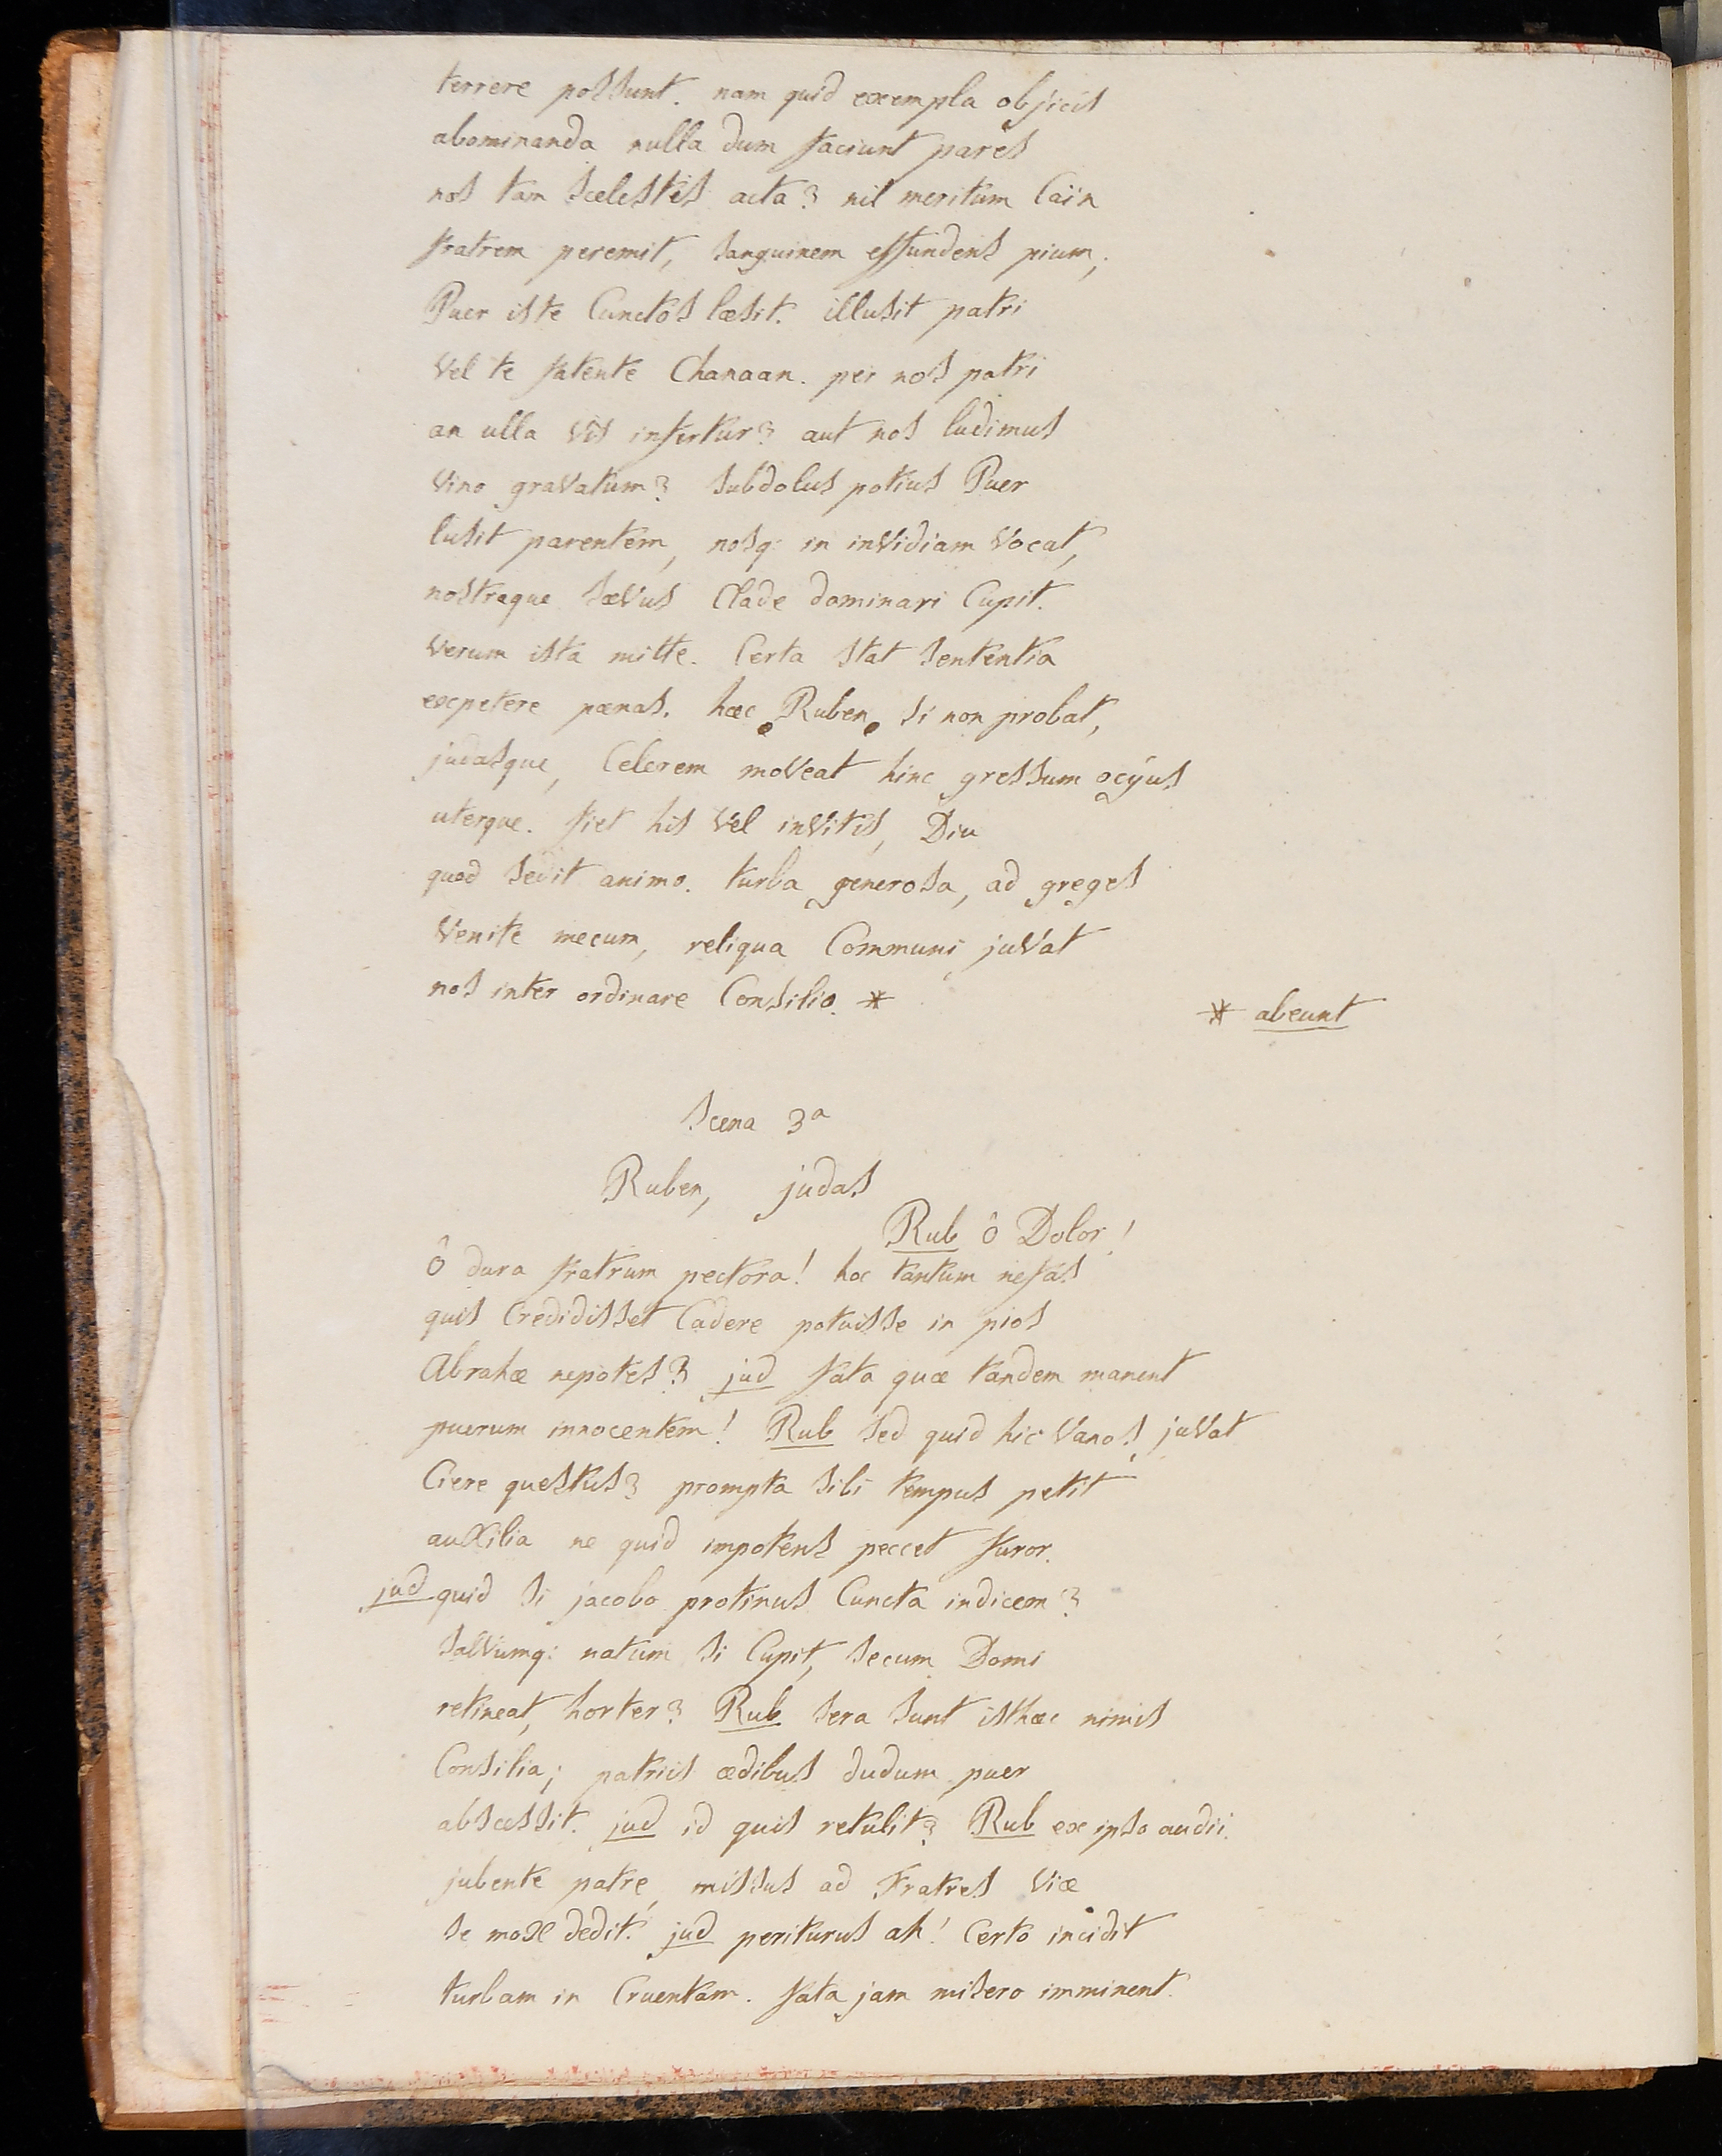 terrere possunt. nam quid exempla objicis
abominanda nulla dum faciunt pares
nos tam scelestis acta? nil meritum Caïn
fratrem peremit, sanguinem effundens pium;
Puer iste Cunctos læsit. illusit patri
Vel te fatente Chanaan. per nos patri
an ulla Vis infertur? aut nos ludimus
Vino graVatum? subdolus potius Puer
lusit parentem, nosq: in inVidiam Vocat,
nostraque sæVus Clade dominari Cupit.
Verum ista mitte. Certa stat sententia
expetere pænas. hæc Ruben si non probat,
judasque, Celerem moVeat hinc gressum ocÿus
uterque. fiet his Vel inVitis, Diu
quod sedit animo. turba generosa, ad greges
Venite mecum, reliqua Communi juVat
nos inter ordinare Consilio. *
* abeunt
Scena 3a
Ruben, judas
Rub ô Dolor!
ô dura fratrum pectora! hoc tantum nefas
quis Credidisset Cadere potuisse in pios
Abrahæ nepotes? jud fata quæ tandem manent
puerum innocentem! Rub sed quid hic Vanos juVat
Ciere questus? prompta sibi tempus petit
auxilia ne quid impotens peccet furor.
jud quid si jacobo protinus Cuncta indicem?
salVumq: natum si Cupit, secum Domi
retineat, horter? Rub sera sunt isthæc nimis
Consilia; patriis ædibus dudum puer
abscessit. jud id quis retulit? Rub ex ipso audii.
jubente patre, missus ad Fratres Viæ
se mox dedit. jud periturus ah! Certo incidit
turbam in Cruentam. fata jam misero imminent.